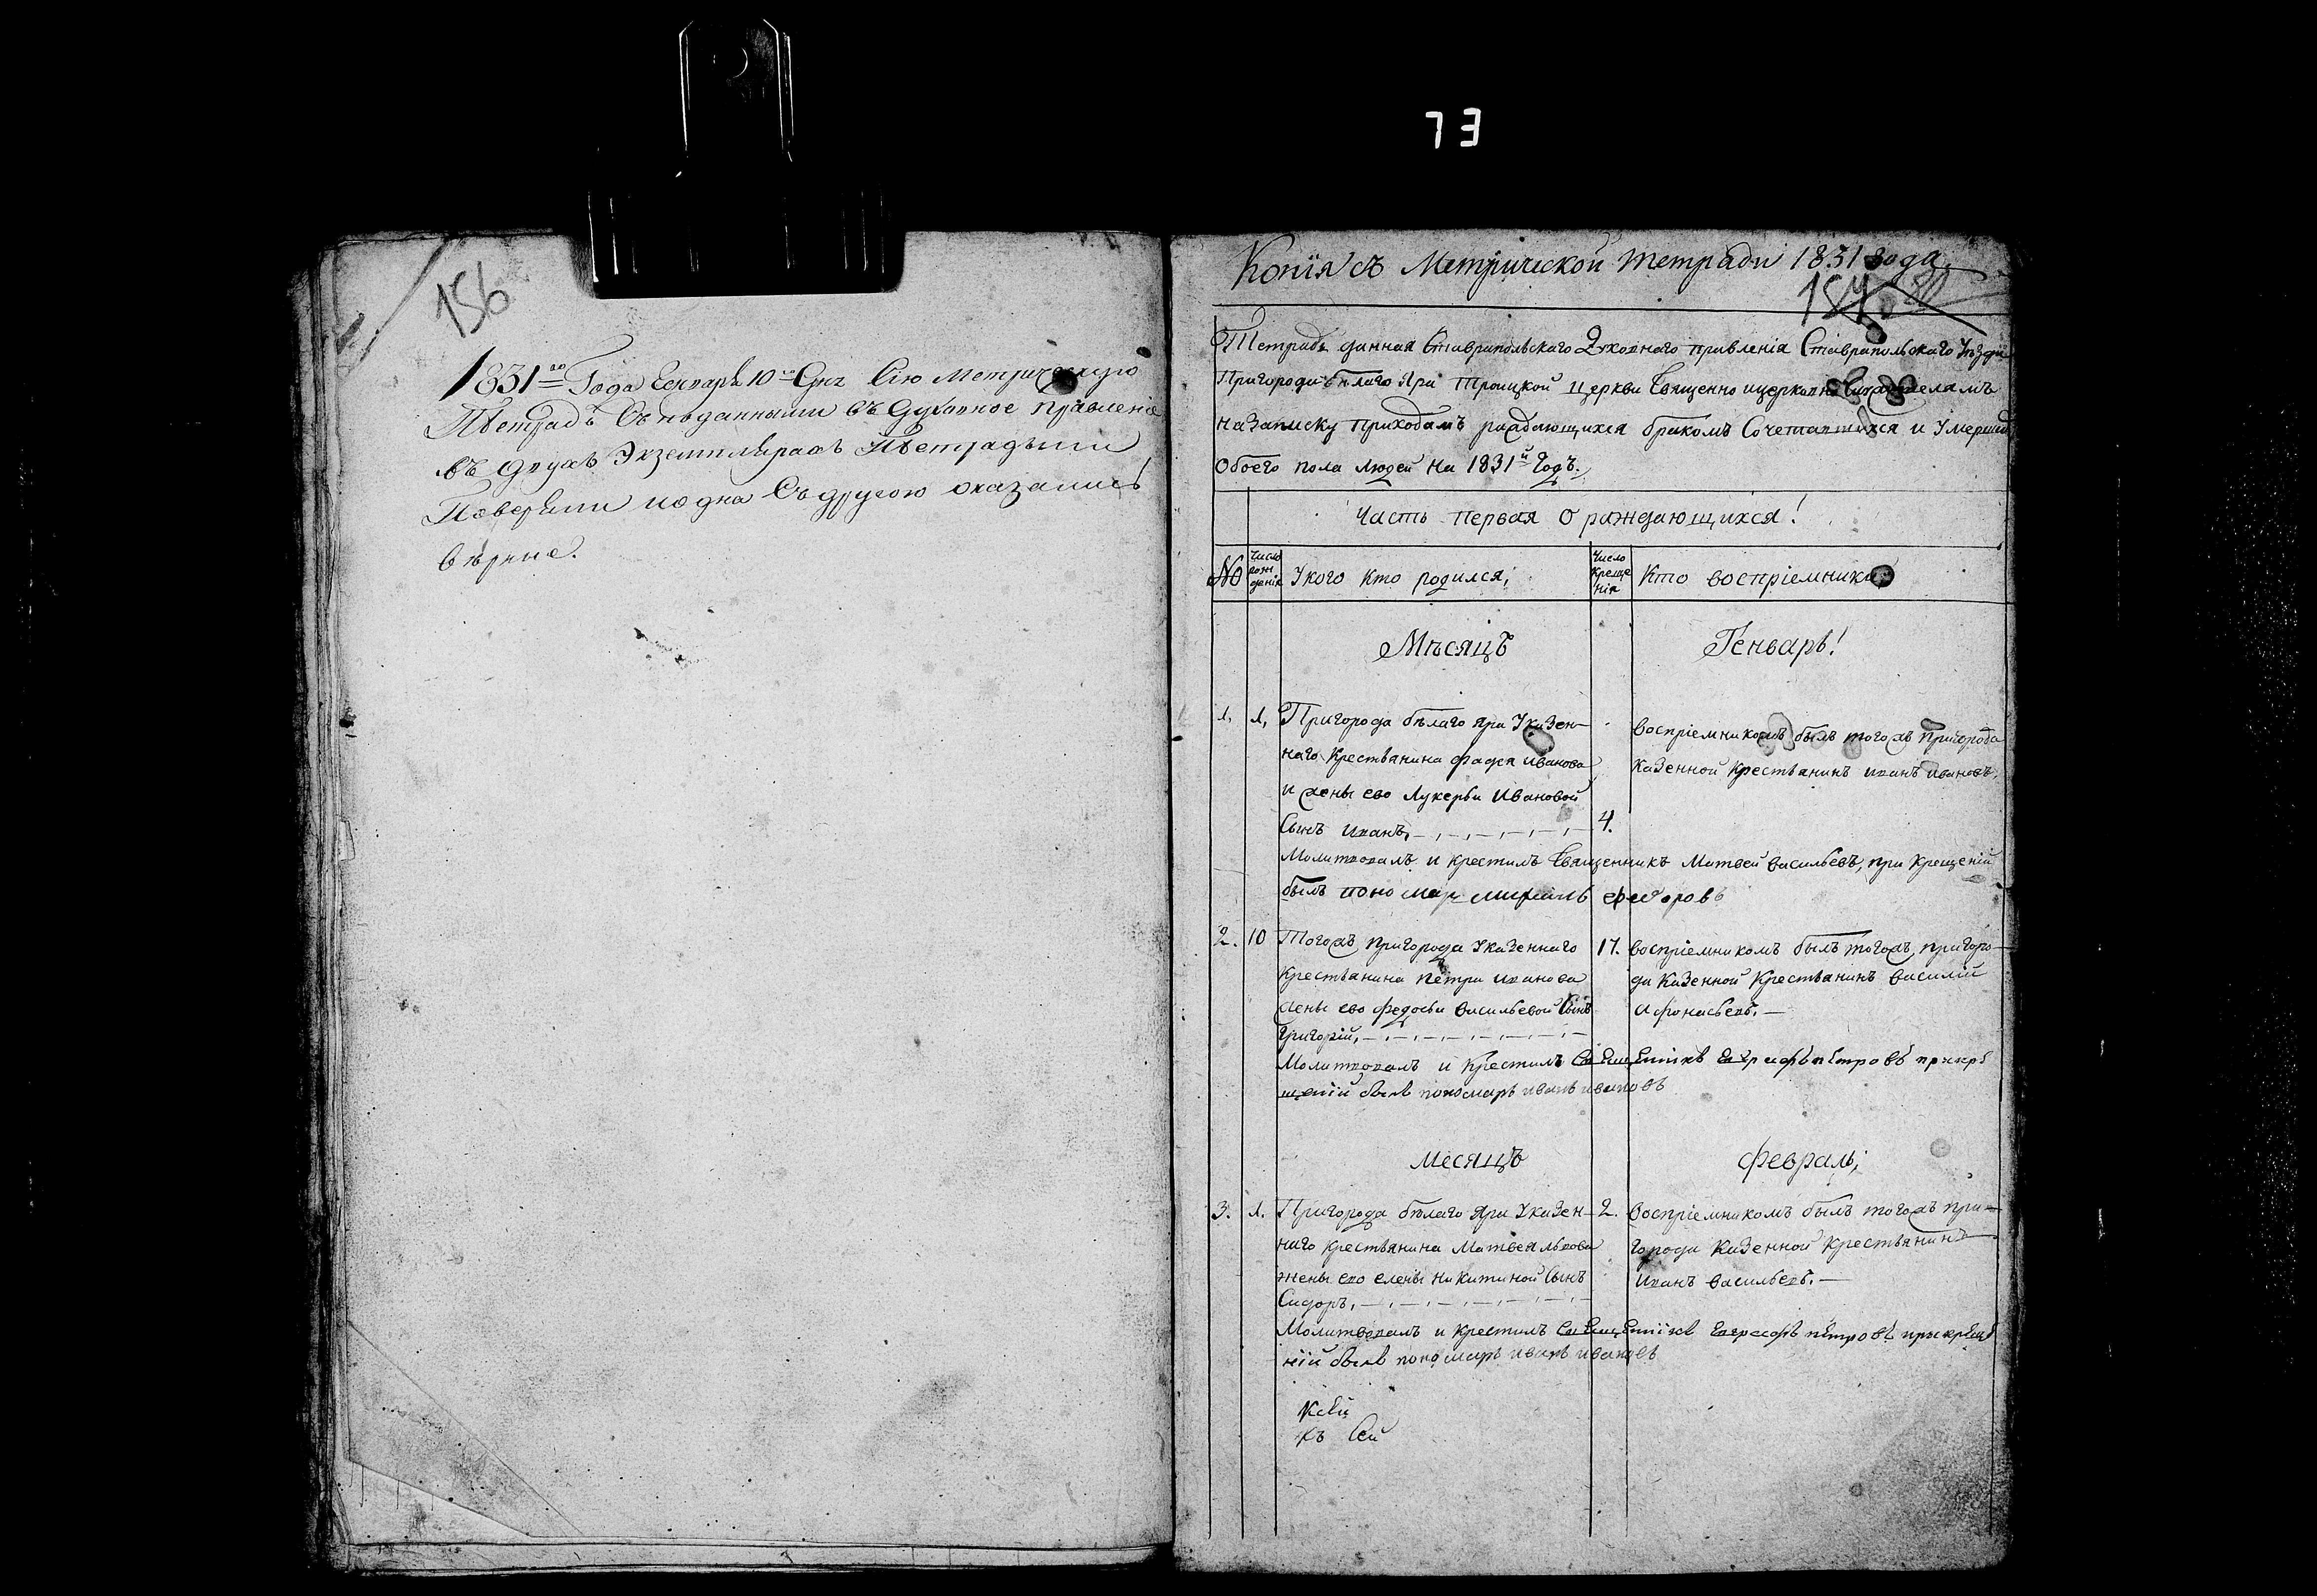 73
156
1831го Года Генваря 10го дня Сію Метрическую
Тетрадь Съ поданными въ Духовное правленіе
въ двухъ Экземплярахъ Тетрадьми
Поверяли и одна Съ другою оказались
верные.
Копія съ Метрической тетради 1831 года
Тетрадь данная Ставропольского Духовного правленія Ставропольского Уезда
Пригорода белаго Яра Троицкой Церкви Священно и церковно
на записку приходомъ раждающихся бракомъ Сочетавшихся и Умерших
Обоего пола людей на 1831й Годъ.
Часть первая О раждающихся!
№
Число рож денія
У кого кто родился,
Число Креще нія
Кто воспріемники
Мѣсяцъ Генварь!
1. 1. Пригорода белаго Яра У казен-
наго Крестьянина фадея иванова
и жены ево Лукерьи Ивановой
Сынъ иванъ, 4.
воспріемникомъ былъ тогожъ Пригорода
Казенной Крестьянинъ иванъ ивановъ.
Молитвовалъ и крестилъ Священникъ Матвей васильевъ, при Крещеніи
былъ пономарь федоровъ
2. 10 Тогожъ Пригорода У казеннаго
Крестьянина петра иванова
жены ево федосьи васильевой Сынъ
Григорій,
17. воспріемникомъ былъ тогожъ пригоро-
да Казенной Крестьянинъ василій
афонасьевъ.
Молитвовалъ и Крестилъ Священникъ Евграфъ петровъ прикре
щеніи былъ пономарь иванъ ивановъ
месяцъ февраль,
3. 1. Пригорода белаго Яра У казен-
наго крестьянина Матвея львова
жены ево елены никитиной Сынъ
Сидоръ,
2. воспріемникомъ былъ тогожъ при-
города Казенной Крестьянинъ
иванъ васильевъ.
Молитвовалъ и крестилъ Священникъ Евграфъ петровъ прикреще
ніи былъ пономарь иванъ ивановъ
Ксей
къ Сей